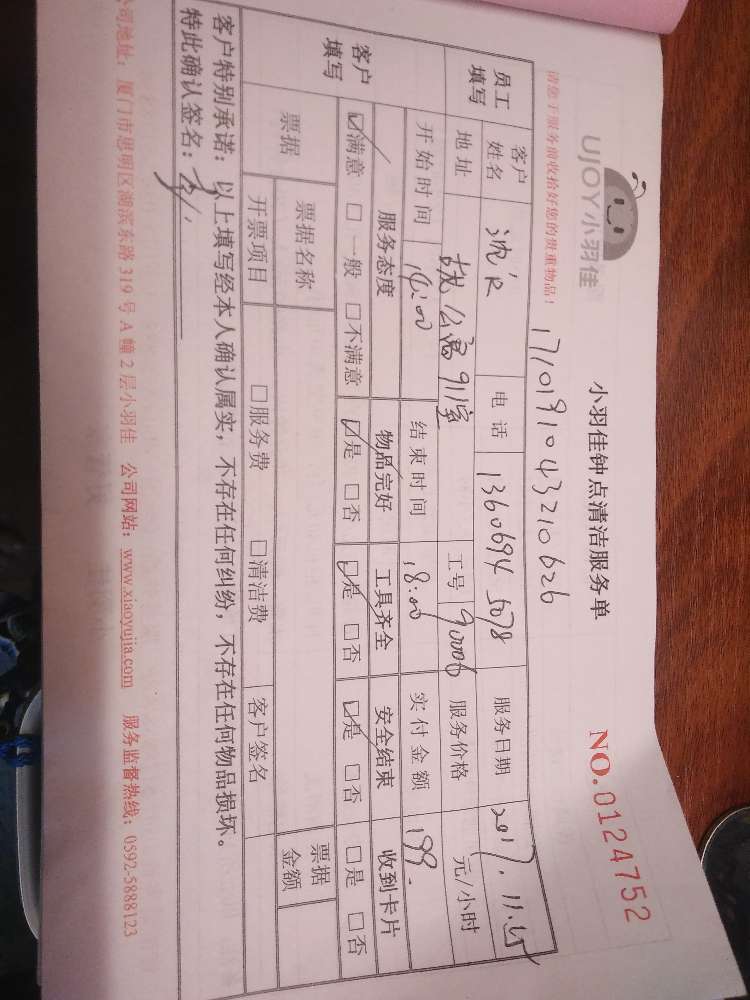 UJOY小羽佳
小羽佳钟点清洁服务单
NO.0124752
请您于服务前收拾好您的贵重物品!
1710191043210626
员工填写 客户姓名 沈 电话 13606945078 服务日期 2017.11.5
地址 公寓911室 工号 90006 服务价格 元/小时
开始时间 14:00 结束时间 18:00 实付金额 199.
客户填写 服务态度 物品完好 工具齐全 安全结束 收到卡片
☑满意 □一般 □不满意 ☑是 □否 ☑是 □否 ☑是 □否 □是 □否
票据 票据名称 票据金额
开票项目 □服务费 □清洁费 客户签名
客户特别承诺:以上填写经本人确认属实,不存在任何纠纷,不存在任何物品损坏。
特此确认签名:
公司地址:厦门市思明区湖滨东路319号A幢2层小羽佳 公司网站:www.xiaoyujia.com 服务监督热线:0592-5888123